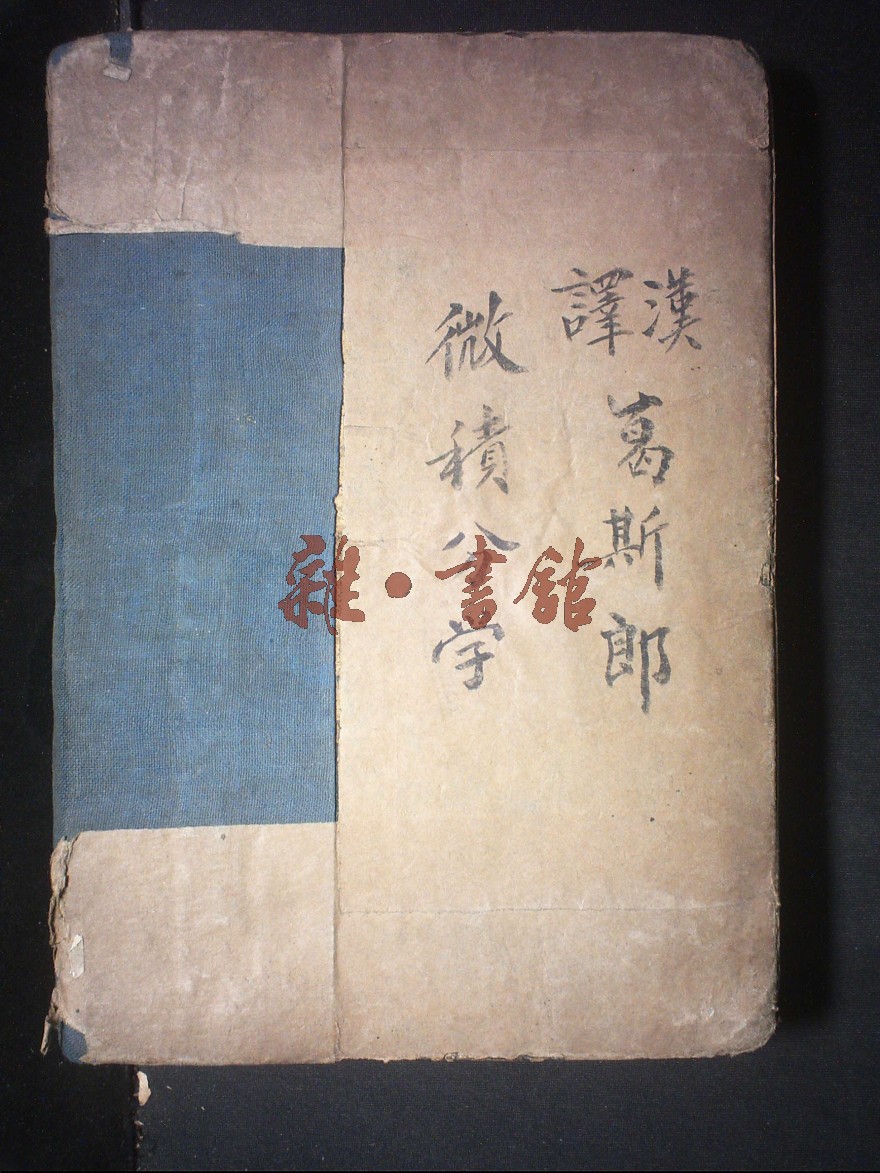 漢譯 葛斯郎
微積分学
雜·書館